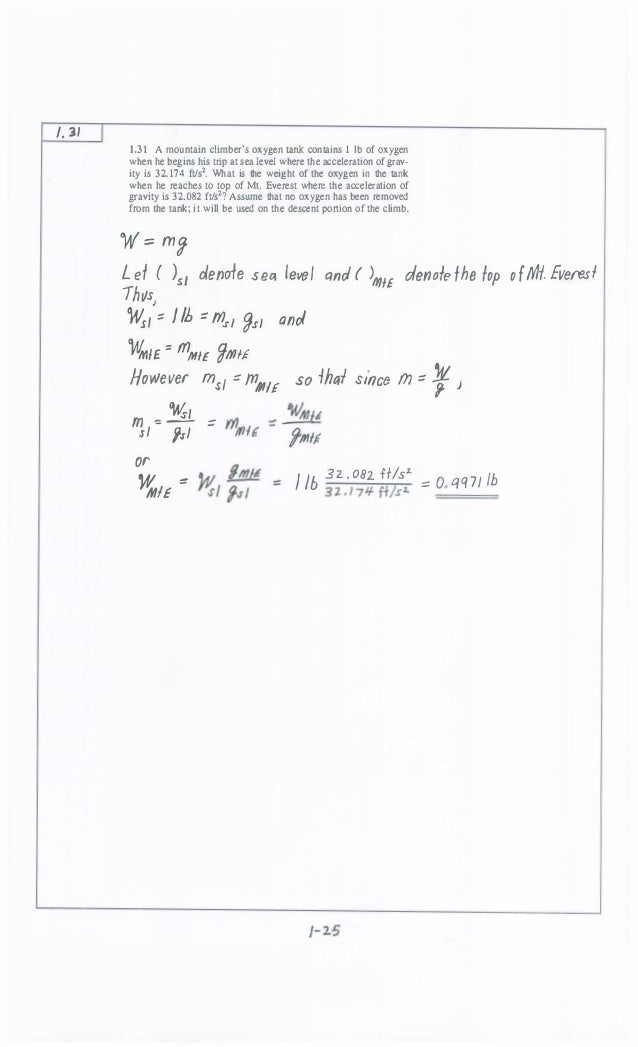 1.31
1.31 A mountain climber's oxygen tank contains 1 lb of oxygen
when he begins his trip at sea level where the acceleration of grav-
ity is 32.174 ft/s². What is the weight of the oxygen in the tank
when he reaches to top of Mt. Everest where the acceleration of
gravity is 32.082 ft/s²? Assume that no oxygen has been removed
from the tank; it will be used on the descent portion of the climb.
W = mg
Let ( )sl denote sea level and ( )MtE denote the top of Mt. Everest
Thus,
Wsl = 1 lb = msl gsl and
WMtE = mMtE gMtE
However msl = mMtE so that since m = W/g ,
msl = Wsl/gsl = mMtE = WMtE/gMtE
or
WMtE = Wsl gMtE/gsl = 1 lb 32.082 ft/s²/32.174 ft/s² = 0.9971 lb
1-25